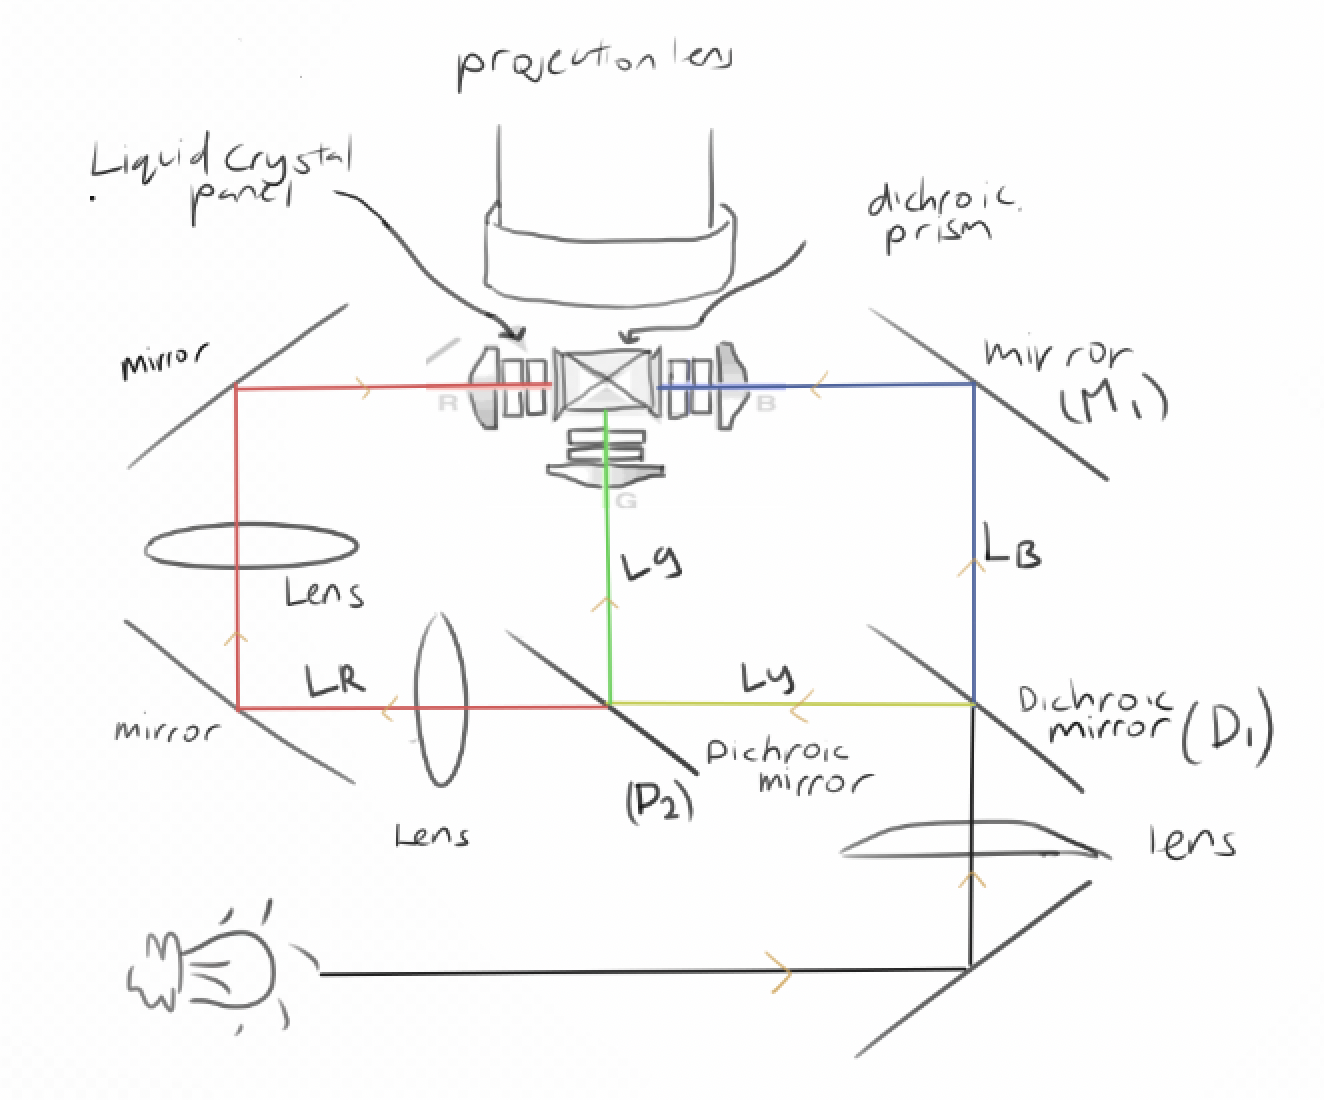 projection lens
Liquid Crystal
panel
dichroic
prism
mirror
mirror
(M1)
R
B
G
Lg
LB
Lens
LR
Ly
mirror
Dichroic
mirror (D1)
Dichroic
mirror
(D2)
Lens
lens